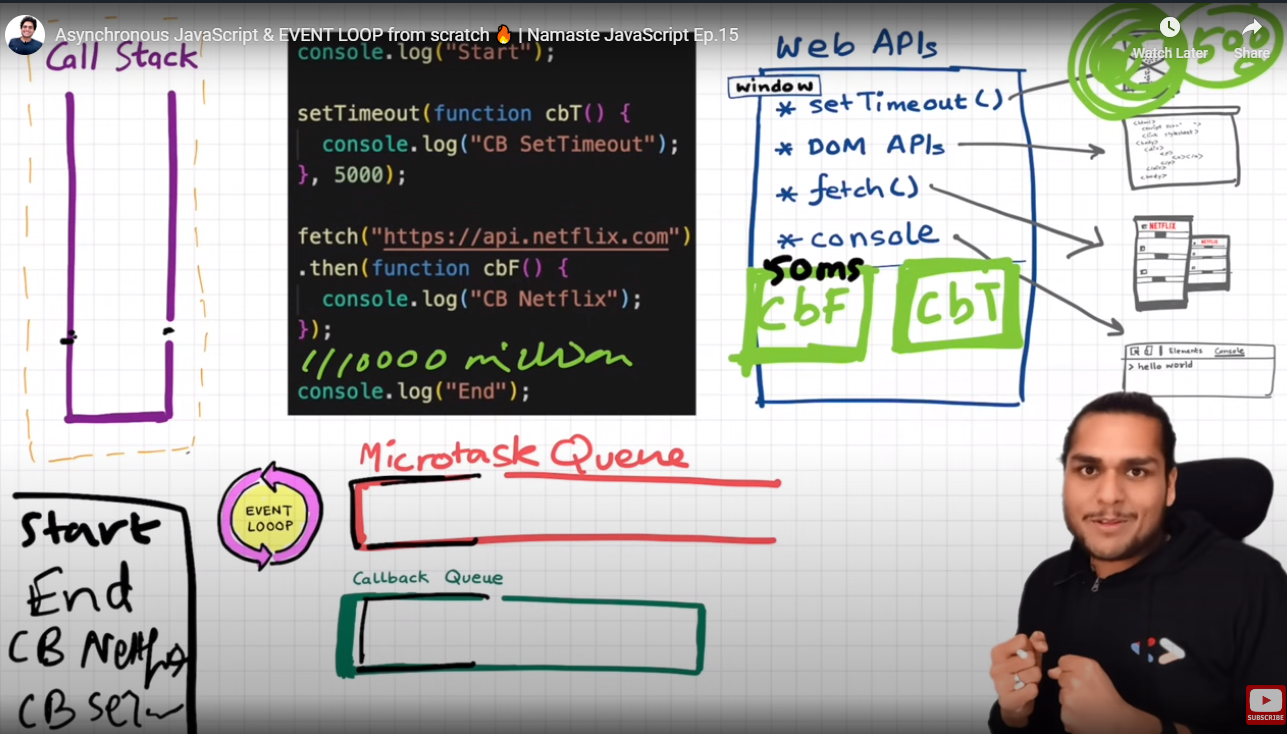 Asynchronous JavaScript & EVENT LOOP from scratch 🔥 | Namaste JavaScript Ep.15
Watch Later
Share
Call Stack
console.log("Start");
setTimeout(function cbT() {
console.log("CB SetTimeout");
}, 5000);
fetch("https://api.netflix.com")
.then(function cbF() {
console.log("CB Netflix");
});
million
console.log("End");
Web APIs
window
* setTimeout()
* DOM APIs
* fetch()
* console
50ms
cbF
cbT
<body>
<div>
</div>
</body>
NETFLIX
NETFLIX
Elements Console
> hello world
Microtask Queue
EVENT
LOOOP
Callback Queue
Start
End
CB
CB
SUBSCRIBE